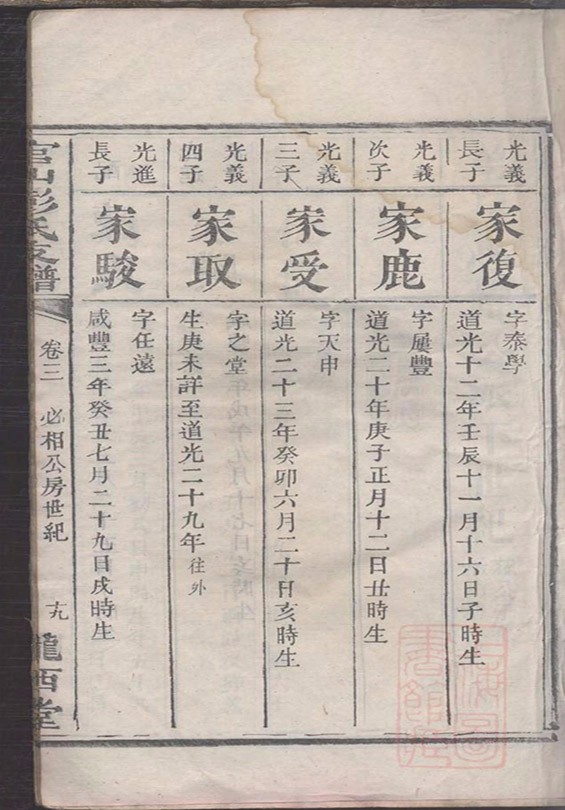 光義
長子
家復
字泰學
道光十二年壬辰十一月十六日子時生
光義
次子
家鹿
字屢豐
道光二十年庚子正月十二日丑時生
光義
三子
家受
字天申
道光二十三年癸卯六月二十日亥時生
光義
四子
家取
字之堂
生庚未詳至道光二十九年往外
光進
長子
家駿
字任遠
咸豐三年癸丑七月二十九日戌時生
官山彭氏支譜
卷三
必相公房世紀
十九
隴西堂
上海圖書館藏